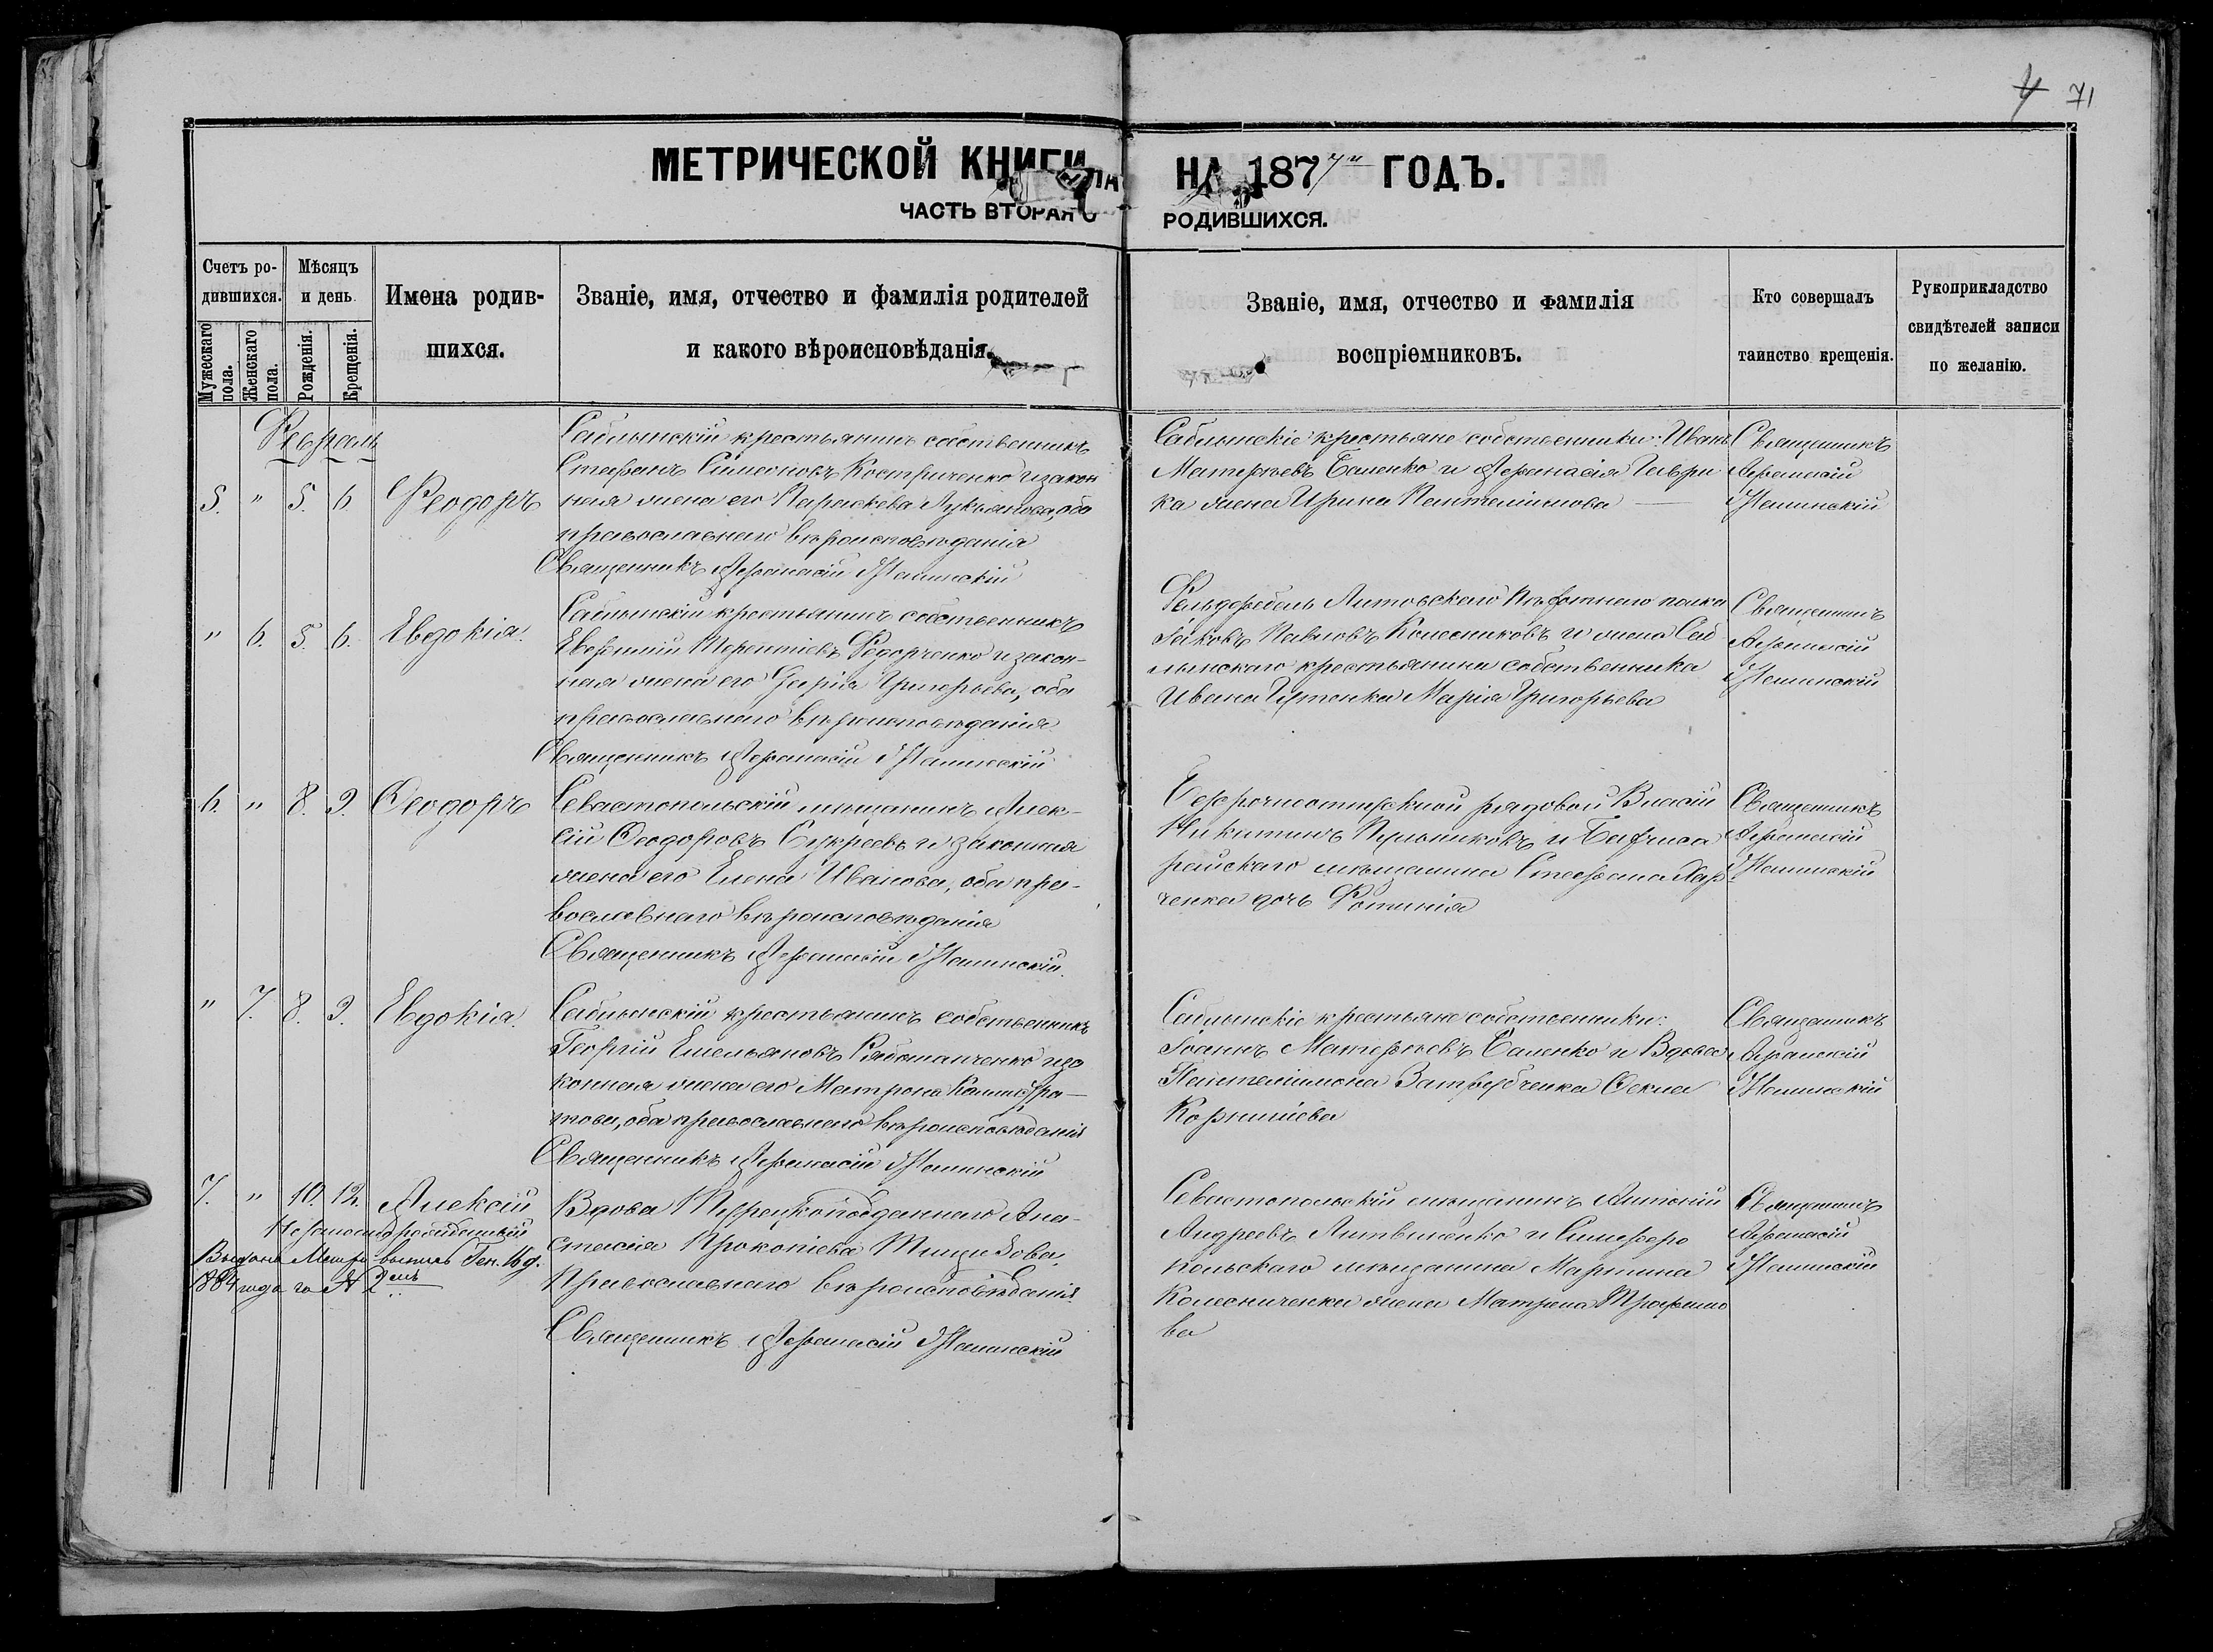 4 71
МЕТРИЧЕСКОЙ КНИГИ НА 1877й ГОДЪ.
ЧАСТЬ ВТОРАЯ О РОДИВШИХСЯ.
Счетъ ро-
дившихся.
Мужескаго
пола.
Женскаго
пола.
Мѣсяцъ
и день
Рожденія.
Крещенія.
Имена родив-
шихся.
Званіе, имя, отчество и фамилія родителей
и какого вѣроисповѣданія.
Званіе, имя, отчество и фамилія
воспріемниковъ.
Кто совершалъ
таинство крещенія.
Рукоприкладство
свидѣтелей записи
по желанію.
Февраль
5. " 5. 6. Феодоръ
Саблынскій крестьянинъ собственникъ
Стефанъ Симеоновъ Костриченко и закон
ная жена его Параскева Лукьянова, оба
православнаго вѣроисповѣданія
Священникъ Афанасій
Саблынскіе крестьяне собственники: Иванъ
Матѳѣевъ Баленко и Афанасія Гаври
ка жена Ирина Пантелимонова
Священникъ
Афанасій
" 6. 5. 6. Евдокія.
Саблынскій крестьянинъ собственникъ
Терентіевъ Федорченко и закон-
ная жена его Дарія Григорьева, оба
православнаго вѣроисповѣданія
Священникъ Афанасій
Фельдфебель Литовскаго Пѣхотнаго полка
Яковъ Павловъ Колесниковъ и жена Саб
лынскаго крестьянина собственника
Ивана Марія Григорьева
Священникъ
Афанасій
6. " 8. 9. Ѳеодоръ
Севастопольскій мѣщанинъ Алек-
сій Ѳеодоровъ и законная
жена его Елена Иванова, оба пра-
вославнаго вѣроисповѣданія
Священникъ Афанасій
рядовой Власій
Никитинъ и Бахчиса
райскаго мѣщанина Стефана Хар
ченка дочь Фотинія
Священникъ
Афанасій
" 7. 8. 9. Евдокія.
Саблынскій крестьянинъ собственникъ
Георгій Емельяновъ и за
конная жена его Матрона Калистра-
това, оба православнаго вѣроисповѣданія
Священникъ Афанасій
Саблынскіе крестьяне собственники:
Іоаннъ Матѳѣевъ Баленко и Вдова
Пантелимона Ѳекла
Корниліева
Священникъ
Афанасій
7. " 10. 12. Алексій
Незаконнорожденный
Выданъ Метри. выпись Ген. 16 д.
1884 года за № 2мъ
Вдова Турецкоподданнаго Ана-
стасія Прокопіева
Православнаго вѣроисповѣданія.
Священникъ Афанасій
Севастопольскій мѣщанинъ Антоній
Андреевъ Литвиненко и Симферо
польскаго мѣщанина Мартина
Колесниченка жена Матрона Трофимо
ва
Священникъ
Афанасій